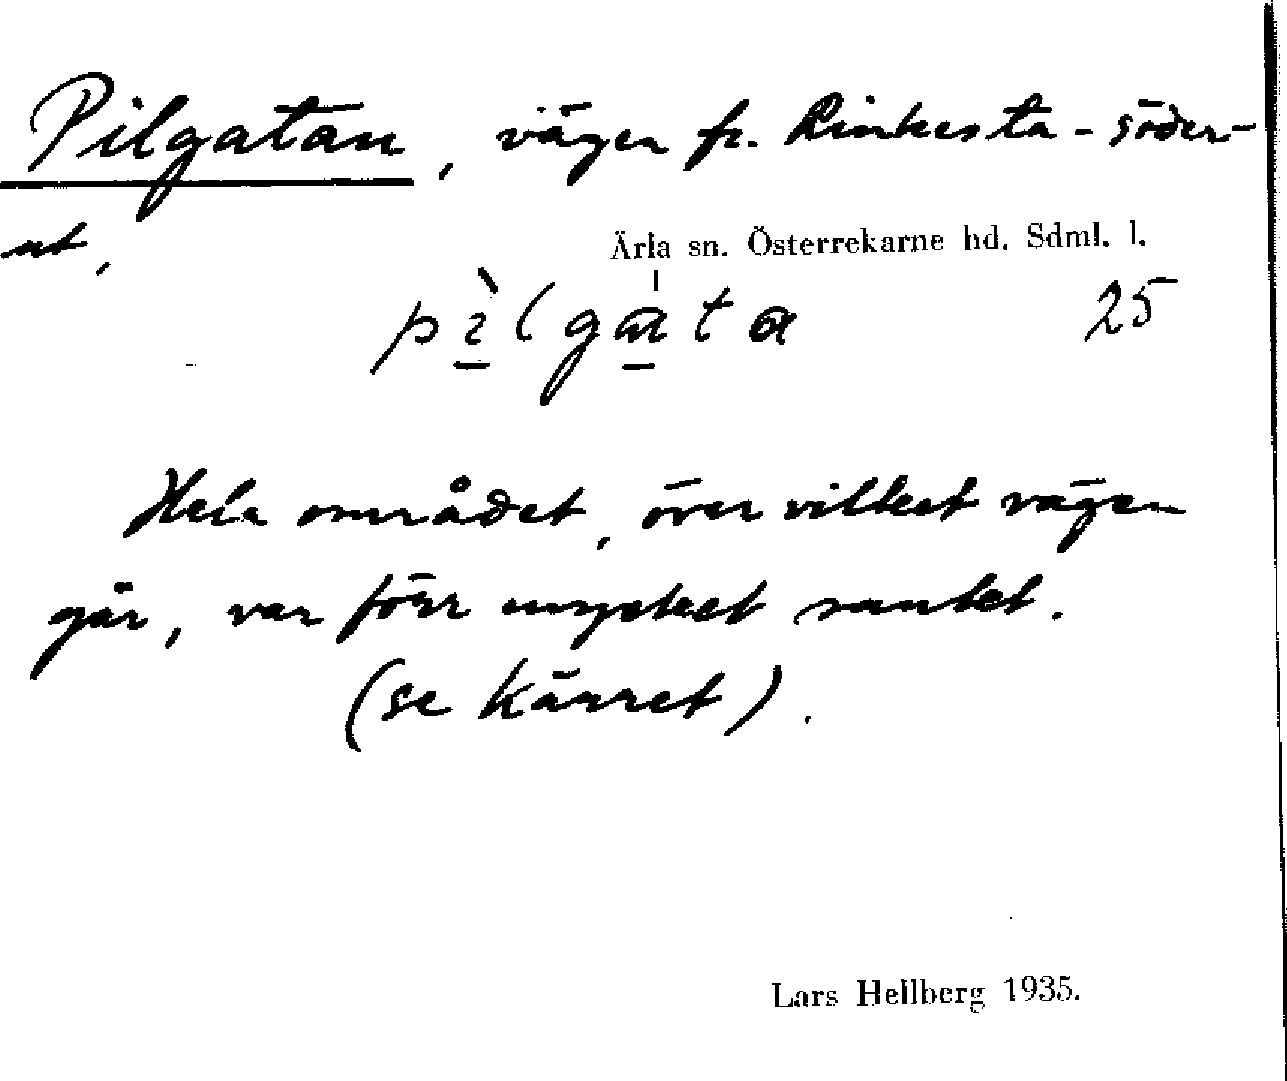 Pilgatan, vägen fr. Rinkesta - söder-
ut,
Ärla sn. Österrekarne hd. Sdml. l.
pìlgata 25
Hela området, över vilket vägen
går, var förr mycket sankt.
(se Kärret).
Lars Hellberg 1935.